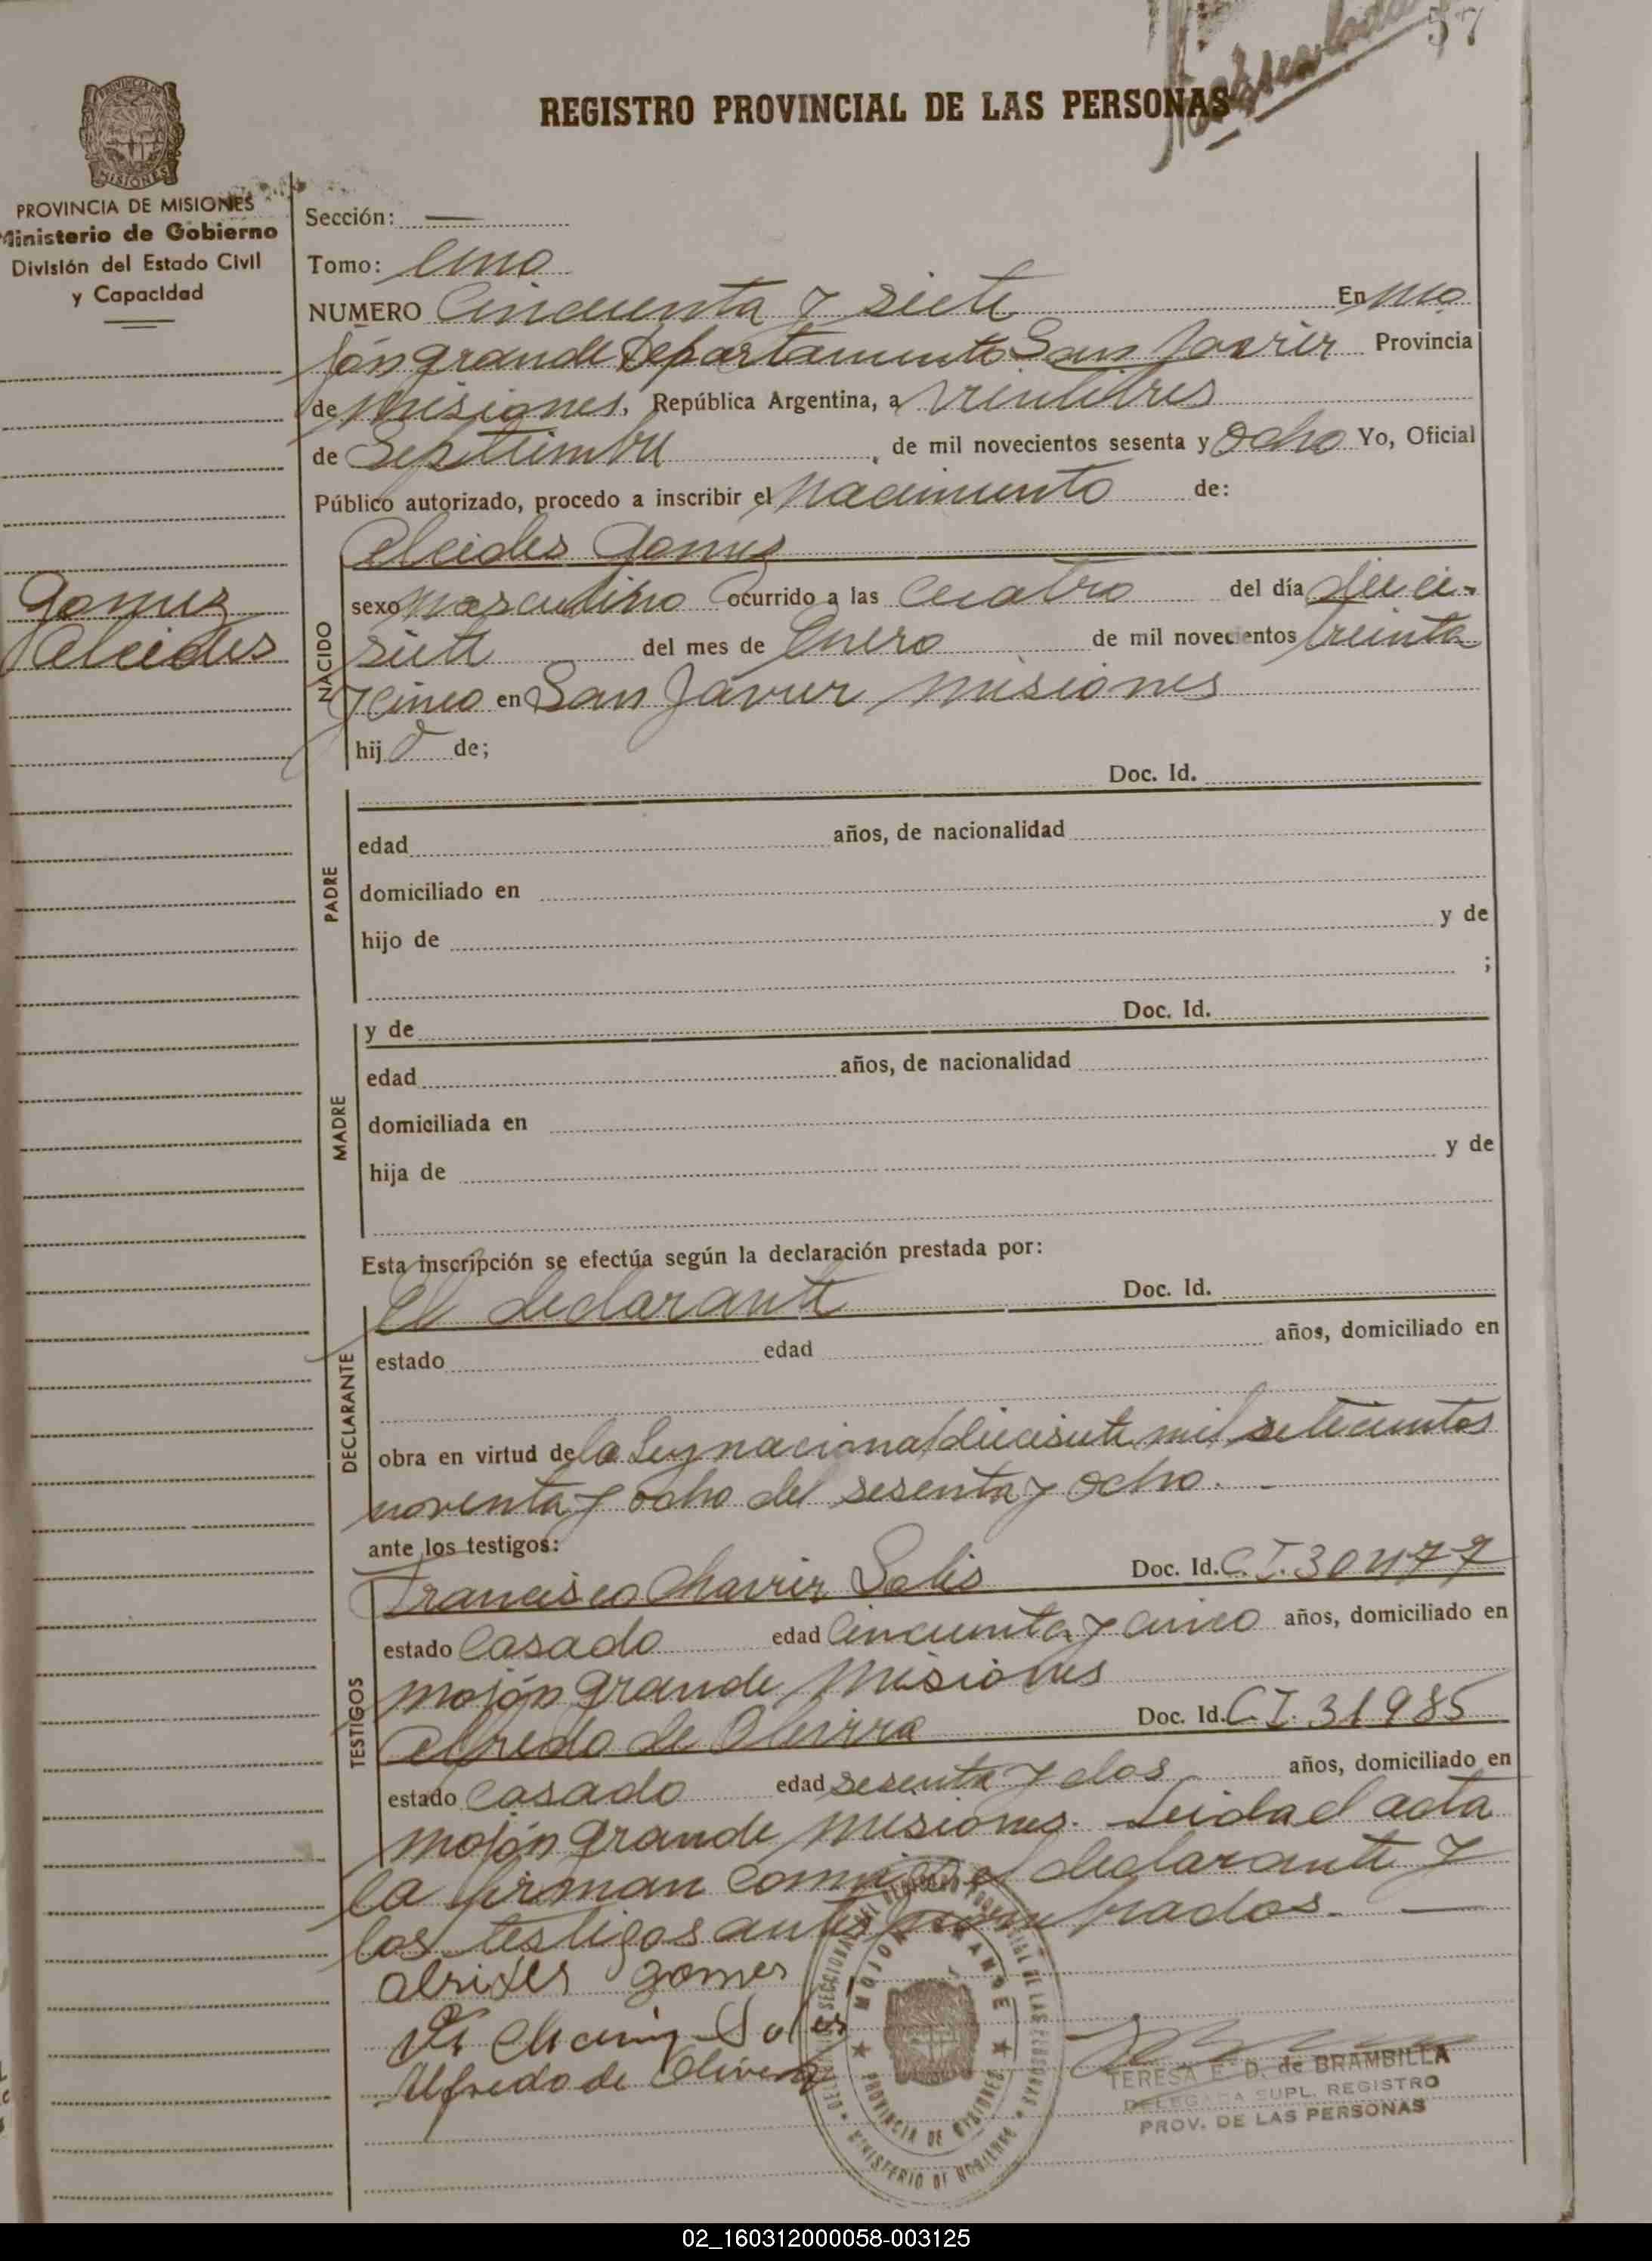 57
REGISTRO PROVINCIAL DE LAS PERSONAS
PROVINCIA DE MISIONES
Ministerio de Gobierno
División del Estado Civil
y Capacidad
Sección: —
Tomo: Uno
NUMERO Cincuenta y siete En Mo
jón grande Departamento San Javier Provincia
de Misiones, República Argentina, a Veintitres
de Septiembre, de mil novecientos sesenta y Ocho Yo, Oficial
Público autorizado, procedo a inscribir el Nacimiento de:
Alcides Gomez
Gomez
Alcides
NACIDO
sexo Masculino Ocurrido a las Cuatro del día dieci-
siete del mes de Enero de mil novecientos treinta
y cinco en San Javier Misiones
hijo de;
Doc. Id.
PADRE
edad años, de nacionalidad
domiciliado en
hijo de y de
;
MADRE
y de Doc. Id.
edad años, de nacionalidad
domiciliada en
hija de y de
Esta inscripción se efectúa según la declaración prestada por:
El declarante Doc. Id.
DECLARANTE
estado edad años, domiciliado en
obra en virtud de la Ley nacional diecisiete mil setecientos
noventa y ocho del sesenta y ocho.-
ante los testigos:
TESTIGOS
Francisco Chavier Solis Doc. Id. C.I. 30477
estado Casado edad Cincuenta y cinco años, domiciliado en
Mojón grande Misiones
Alfredo de Oliveira Doc. Id. C.I. 31985
estado Casado edad sesenta y dos años, domiciliado en
Mojón grande Misiones. Leida el acta
la firman conmigo el declarante y
los testigos antes nombrados. —
gomes
Alfredo de Olivera
MOJON GRANDE
PROVINCIA DE MISIONES
MINISTERIO DE GOBIERNO
TERESA E. D. de BRAMBILLA
DELEGADA SUPL. REGISTRO
PROV. DE LAS PERSONAS
02_160312000058-003125